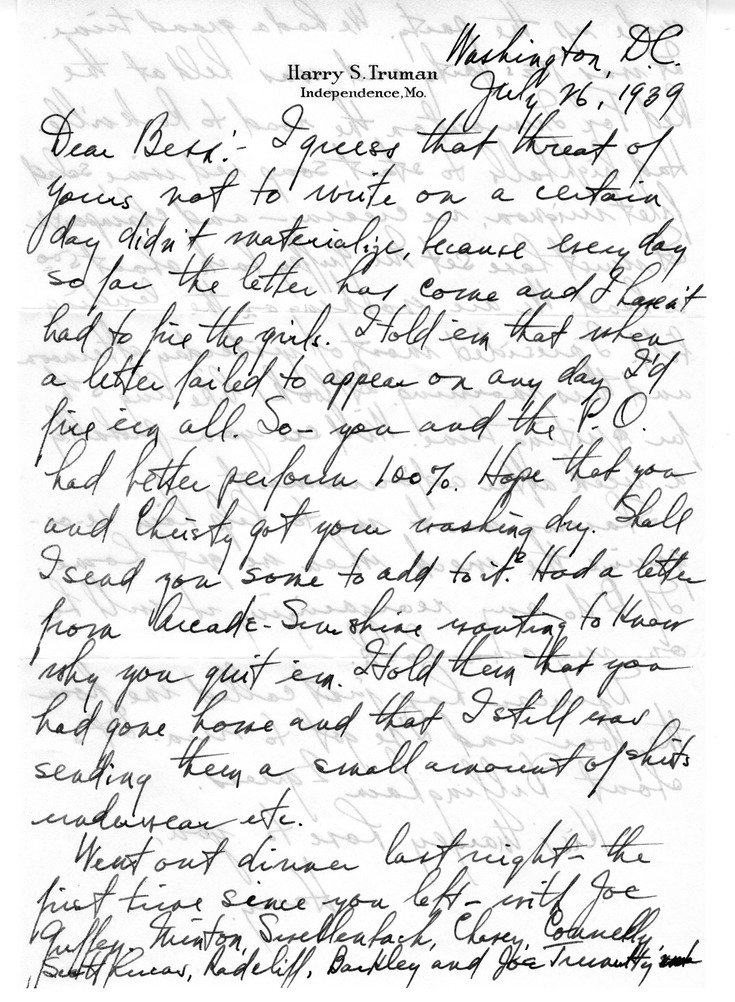 Washington, D.C.
Harry S. Truman
Independence, Mo.
July 26, 1939
Dear Bess:- I guess that threat of
yours not to write on a certain
day didn't materialize, because every day
so far the letter has come and I haven't
had to fire the girls. I told 'em that when
a letter failed to appear on any day I'd
fire 'em all. So- you and the P.O.
had better perform 100%. Hope that you
and Christy got your washing dry. Shall
I send you some to add to it? Had a letter
from Arcade-Sunshine wanting to know
why you quit 'em. I told them that you
had gone home and that I still was
sending them a small amount of shirts
underwear etc.
Went out dinner last night- the
first time since you left- with Joe
Guffey, Minton, Swellenbach, Chavez, Connelly,
Scott Lucas, Radcliff, Barkley and Joe